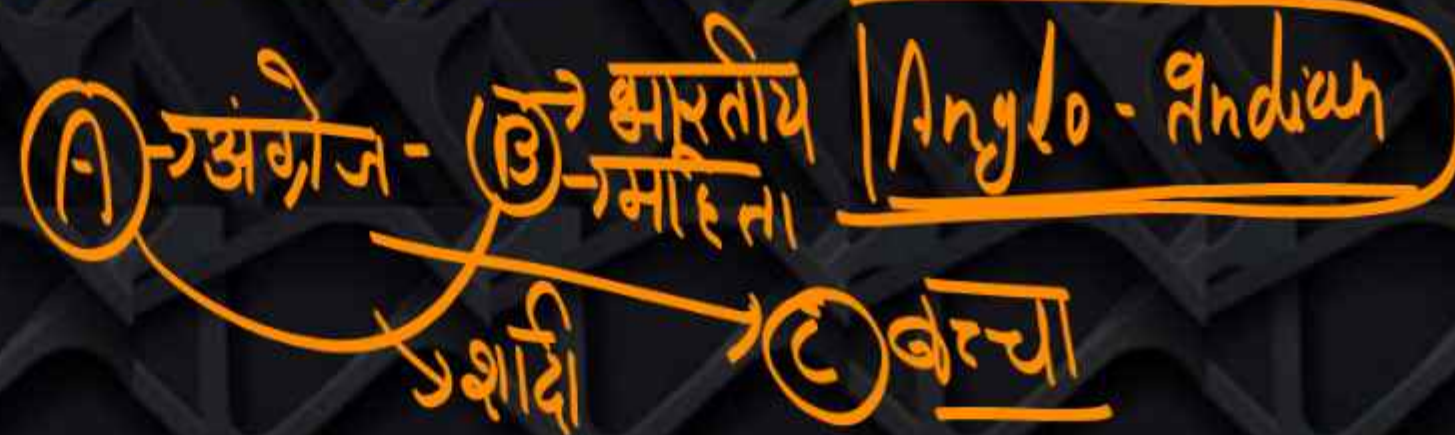 A → अंग्रेज - B → भारतीय Anglo-Indian
→ महिला
→ शादी C बच्चा